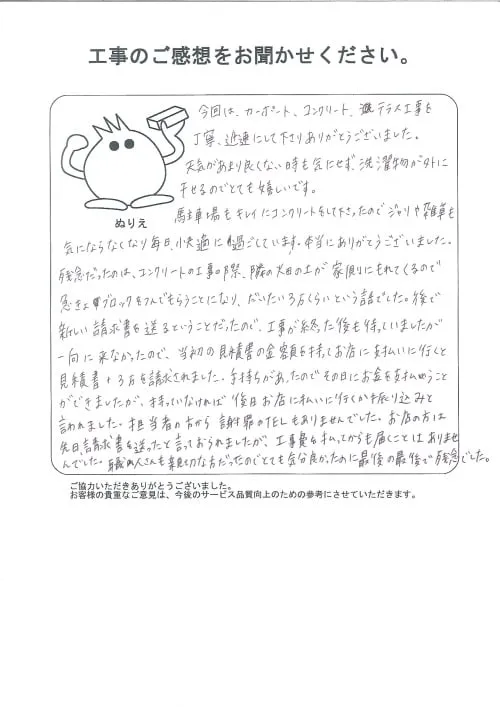 工事のご感想をお聞かせください。
今回は、カーポート、コンクリート、テラス工事を
丁寧、迅速にして下さりありがとうございました。
天気があまり良くない時も気にせず、洗濯物が外に
干せるのでとても嬉しいです。
駐車場もキレイにコンクリートをして下さったので ジャリや雑草も
ぬりえ
気にならなくなり毎日、快適に過ごしています。本当にありがとうございました。
残念だったのは、コンクリートの工事の際、隣の畑の土が家側にもれてくるので
急きょブロックをつんでもらうことになり、だいたい3万くらいという話でした。後で
新しい請求書を送るということだったので、工事が終った後も待っていましたが
一向に来なかったので、当初の見積書の金額を持ってお店に支払いに行くと
見積書+3万を請求されました。手持ちがあったのでその日にお金を支払うこと
ができましたが、持っていなければ 後日お店に払いに行くか振り込みと
言われました。担当者の方から 謝罪のTELもありませんでした。お店の方は
先日、請求書を送ったと言っておられましたが、工事費を払ってからも届くことはありませ
んでした。職人さんも親切な方だったのでとても気分良かったのに最後の最後で残念でした。
ご協力いただきありがとうございました。
お客様の貴重なご意見は、今後のサービス品質向上のための参考にさせていただきます。